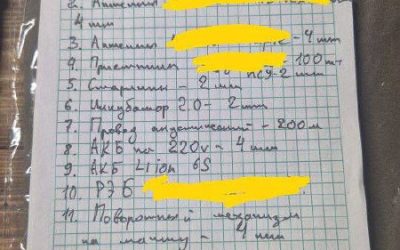 2. Антенны
4 шт
3. Антенны - 4 шт
4. - 100 шт
5. Старлинк - 2 шт
6. Инкубатор 2.0 - 2 шт
7. Провод акустический - 200 м
8 АКБ на 220v - 4 шт
9. АКБ LIion 6S
10. РЭБ
11. Поворотный механизм
на мачту - 4 шт